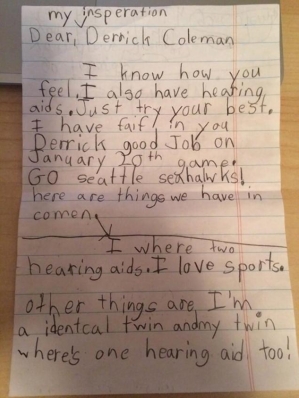 my insperation
Dear, Derrick Coleman
I know how you
feel. I also have hearing
aids. Just try your best.
I have faif in you
Derrick good Job on
January 20th game.
GO seattle seahalwks!
here are things we have in
comen.
I where two
hearing aids. I love sports.
other things are I'm
a identcal twin and my twin
where's one hearing aid too!